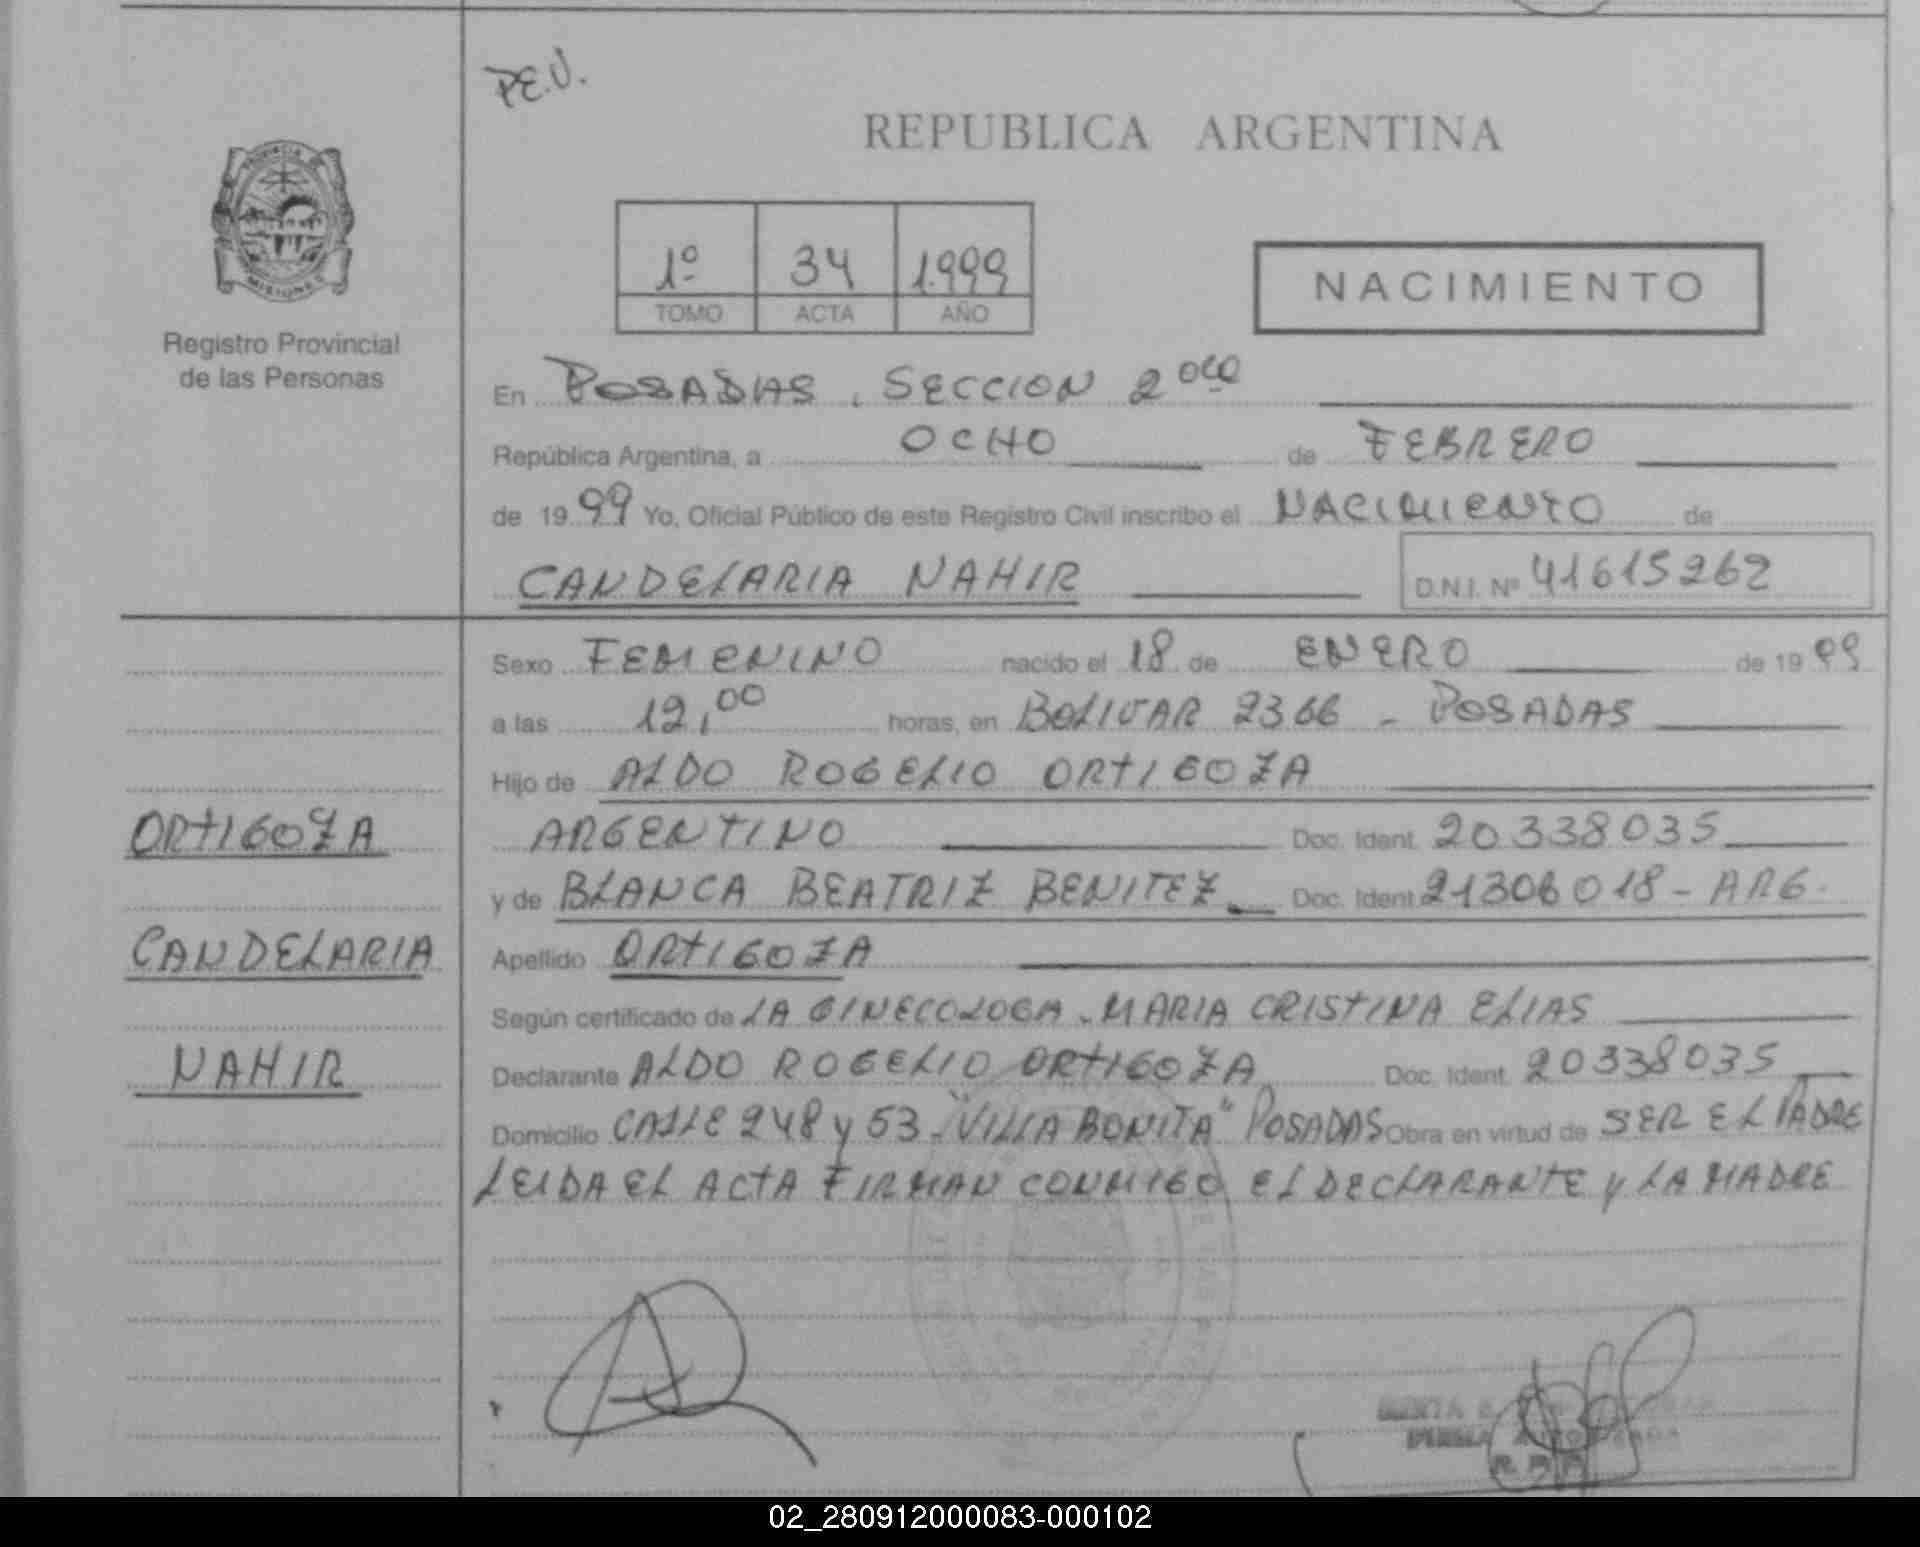 P.E.V.
REPUBLICA ARGENTINA
PROVINCIA DE
MISIONES
Registro Provincial
de las Personas
1º 34 1.999
TOMO ACTA AÑO
NACIMIENTO
En POSADAS, SECCION 2
República Argentina, a OCHO de FEBRERO
de 1999 Yo, Oficial Público de este Registro Civil inscribo el NACIMIENTO de
CANDELARIA NAHIR D.N.I. Nº 41615262
Sexo FEMENINO nacido el 18 de ENERO de 1999
a las 12,00 horas, en BOLIVAR 2366 - POSADAS
Hijo de ALDO ROGELIO ORTIGOZA
ARGENTINO Doc. Ident. 20338035
y de BLANCA BEATRIZ BENITEZ Doc. Ident 21306018 - ARG.
Apellido ORTIGOZA
Según certificado de LA GINECOLOGA. MARIA CRISTINA ELIAS
Declarante ALDO ROGELIO ORTIGOZA Doc. Ident. 20338035
Domicilio CALLE 248 y 53 - "VILLA BONITA" POSADAS Obra en virtud de SER EL PADRE
LEIDA EL ACTA FIRMAN CONMIGO EL DECLARANTE y LA MADRE
ORTIGOZA
CANDELARIA
NAHIR
02_280912000083-000102